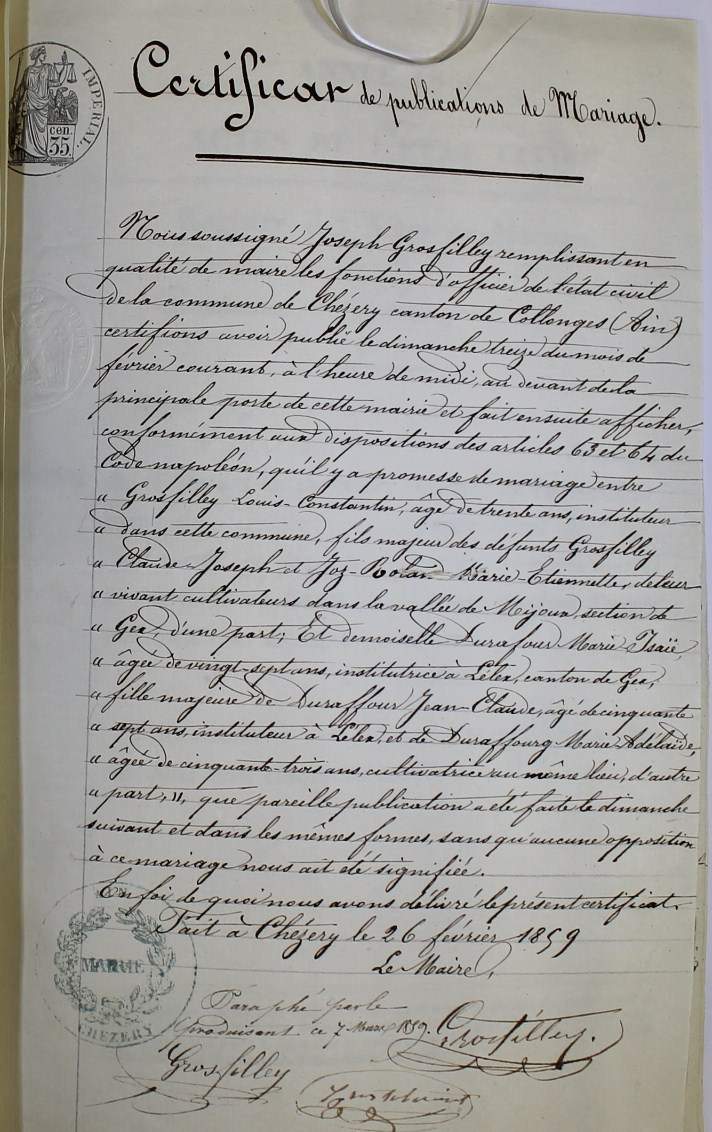 IMPERIAL.
35 cen.
Certificat de publications de Mariage.
Nous soussigné Joseph Grosfilley remplissant en
qualité de maire les fonctions d'officier de l'état civil
de la commune de Chézery canton de Collonges (Ain)
certifions avoir publié le dimanche treize du mois de
février courant, à l'heure de midi, au devant de la
principale porte de cette mairie et fait ensuite afficher,
conformément aux dispositions des articles 63 et 64 du
Code napoléon, qu'il y a promesse de mariage entre
" Grosfilley Louis-Constantin, âgé de trente ans, instituteur
" dans cette commune, fils majeur des défunts Grosfilley
" Claude-Joseph et Joz-Rolan Marie-Etiennette, de leur
" vivant cultivateurs dans la vallée de Mijoux, section de
" Gex, d'une part; Et demoiselle Durafour Marie-Isaïe,
" âgée de vingt-sept ans, institutrice à Lélex, canton de Gex,
" fille majeure de Duraffour Jean-Claude, âgé de cinquante
" sept ans, instituteur à Lélex, et de Duraffourg Marie Adélaïde,
" âgée de cinquante-trois ans, cultivatrice au même lieu, d'autre
" part, ", que pareille publication a été faite le dimanche
suivant et dans les mêmes formes, sans qu'aucune opposition
à ce mariage nous ait été signifiée.
En foi de quoi nous avons délivré le présent certificat.
Fait à Chézery le 26 février 1859
Le Maire,
MAIRIE
CHEZERY
Paraphé par le
produisant ce 7 Mars 1859.
Grosfilley.
Grosfilley